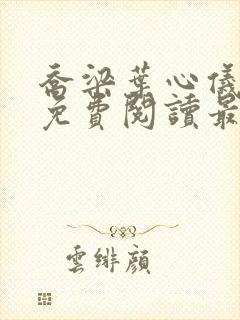 喬梁葉心儀
免費閱讀最
雲緋顏